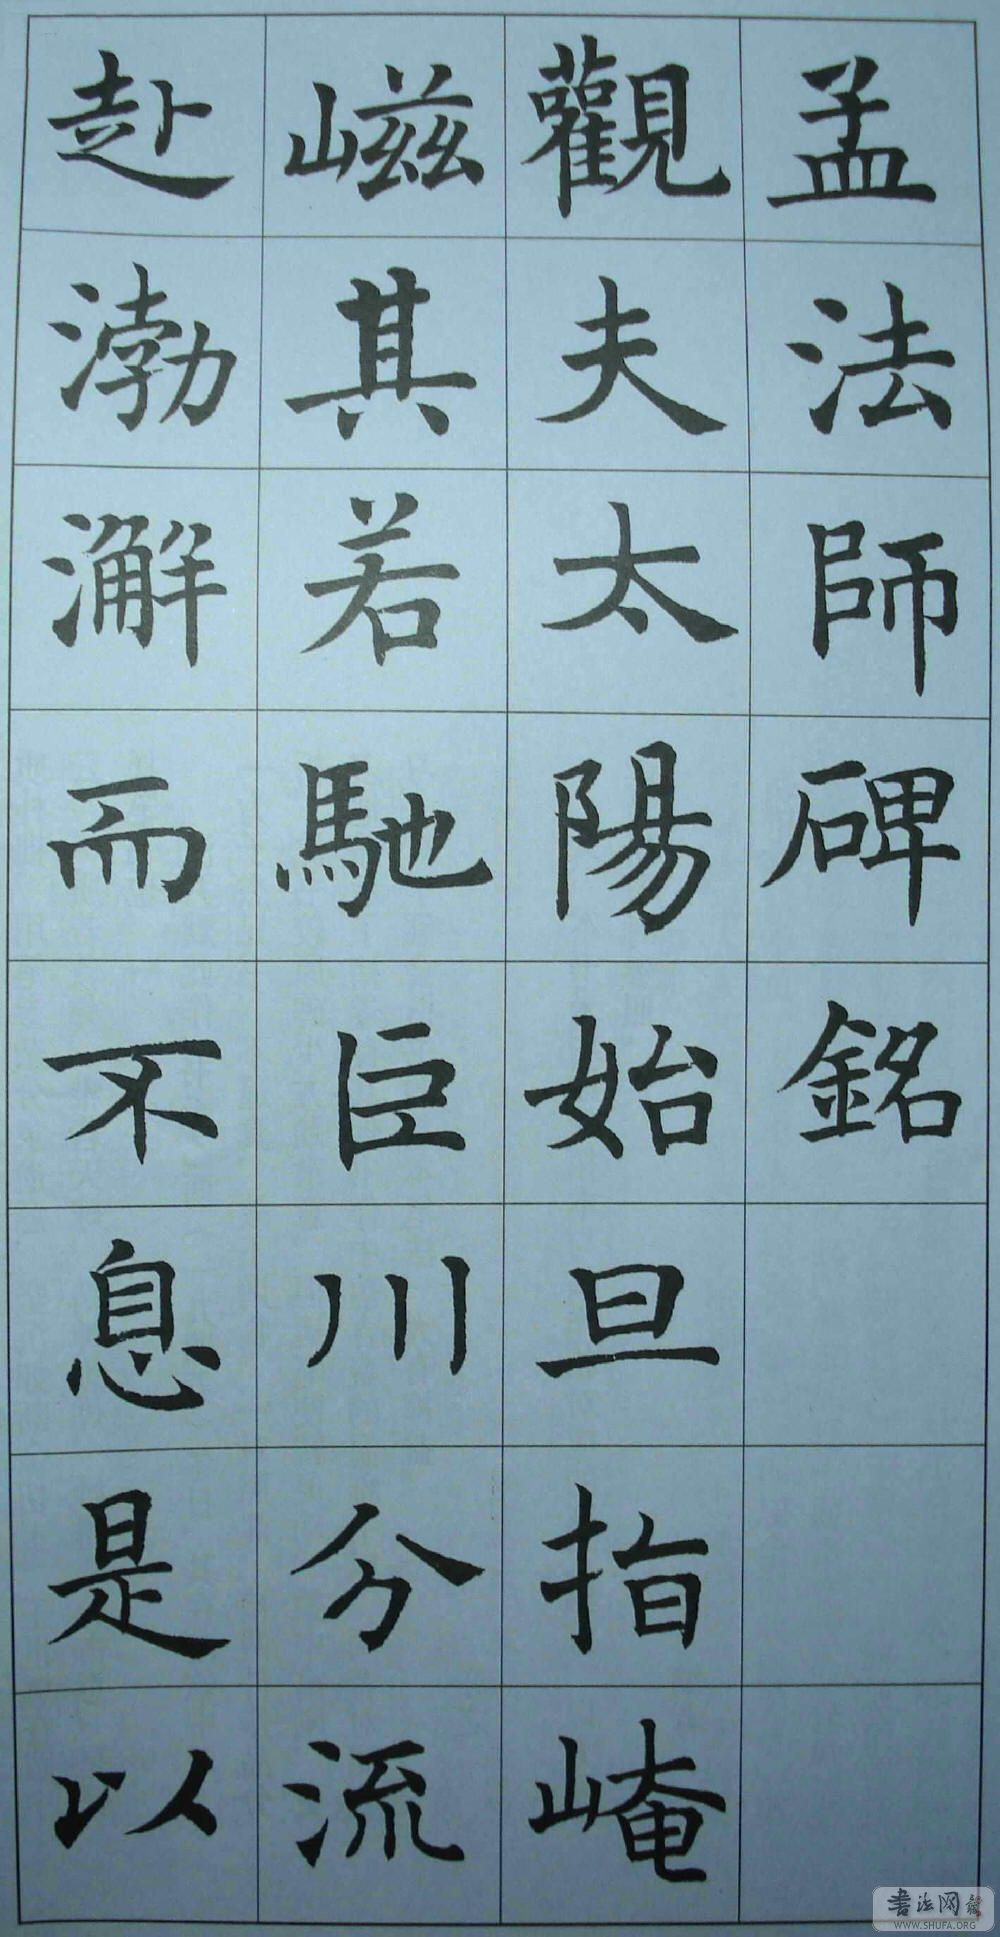 孟法師碑銘
觀夫太陽始旦指崦
嵫其若馳巨川分流
赴渤澥而不息是以
書法网
WWW.SHUFA.ORG